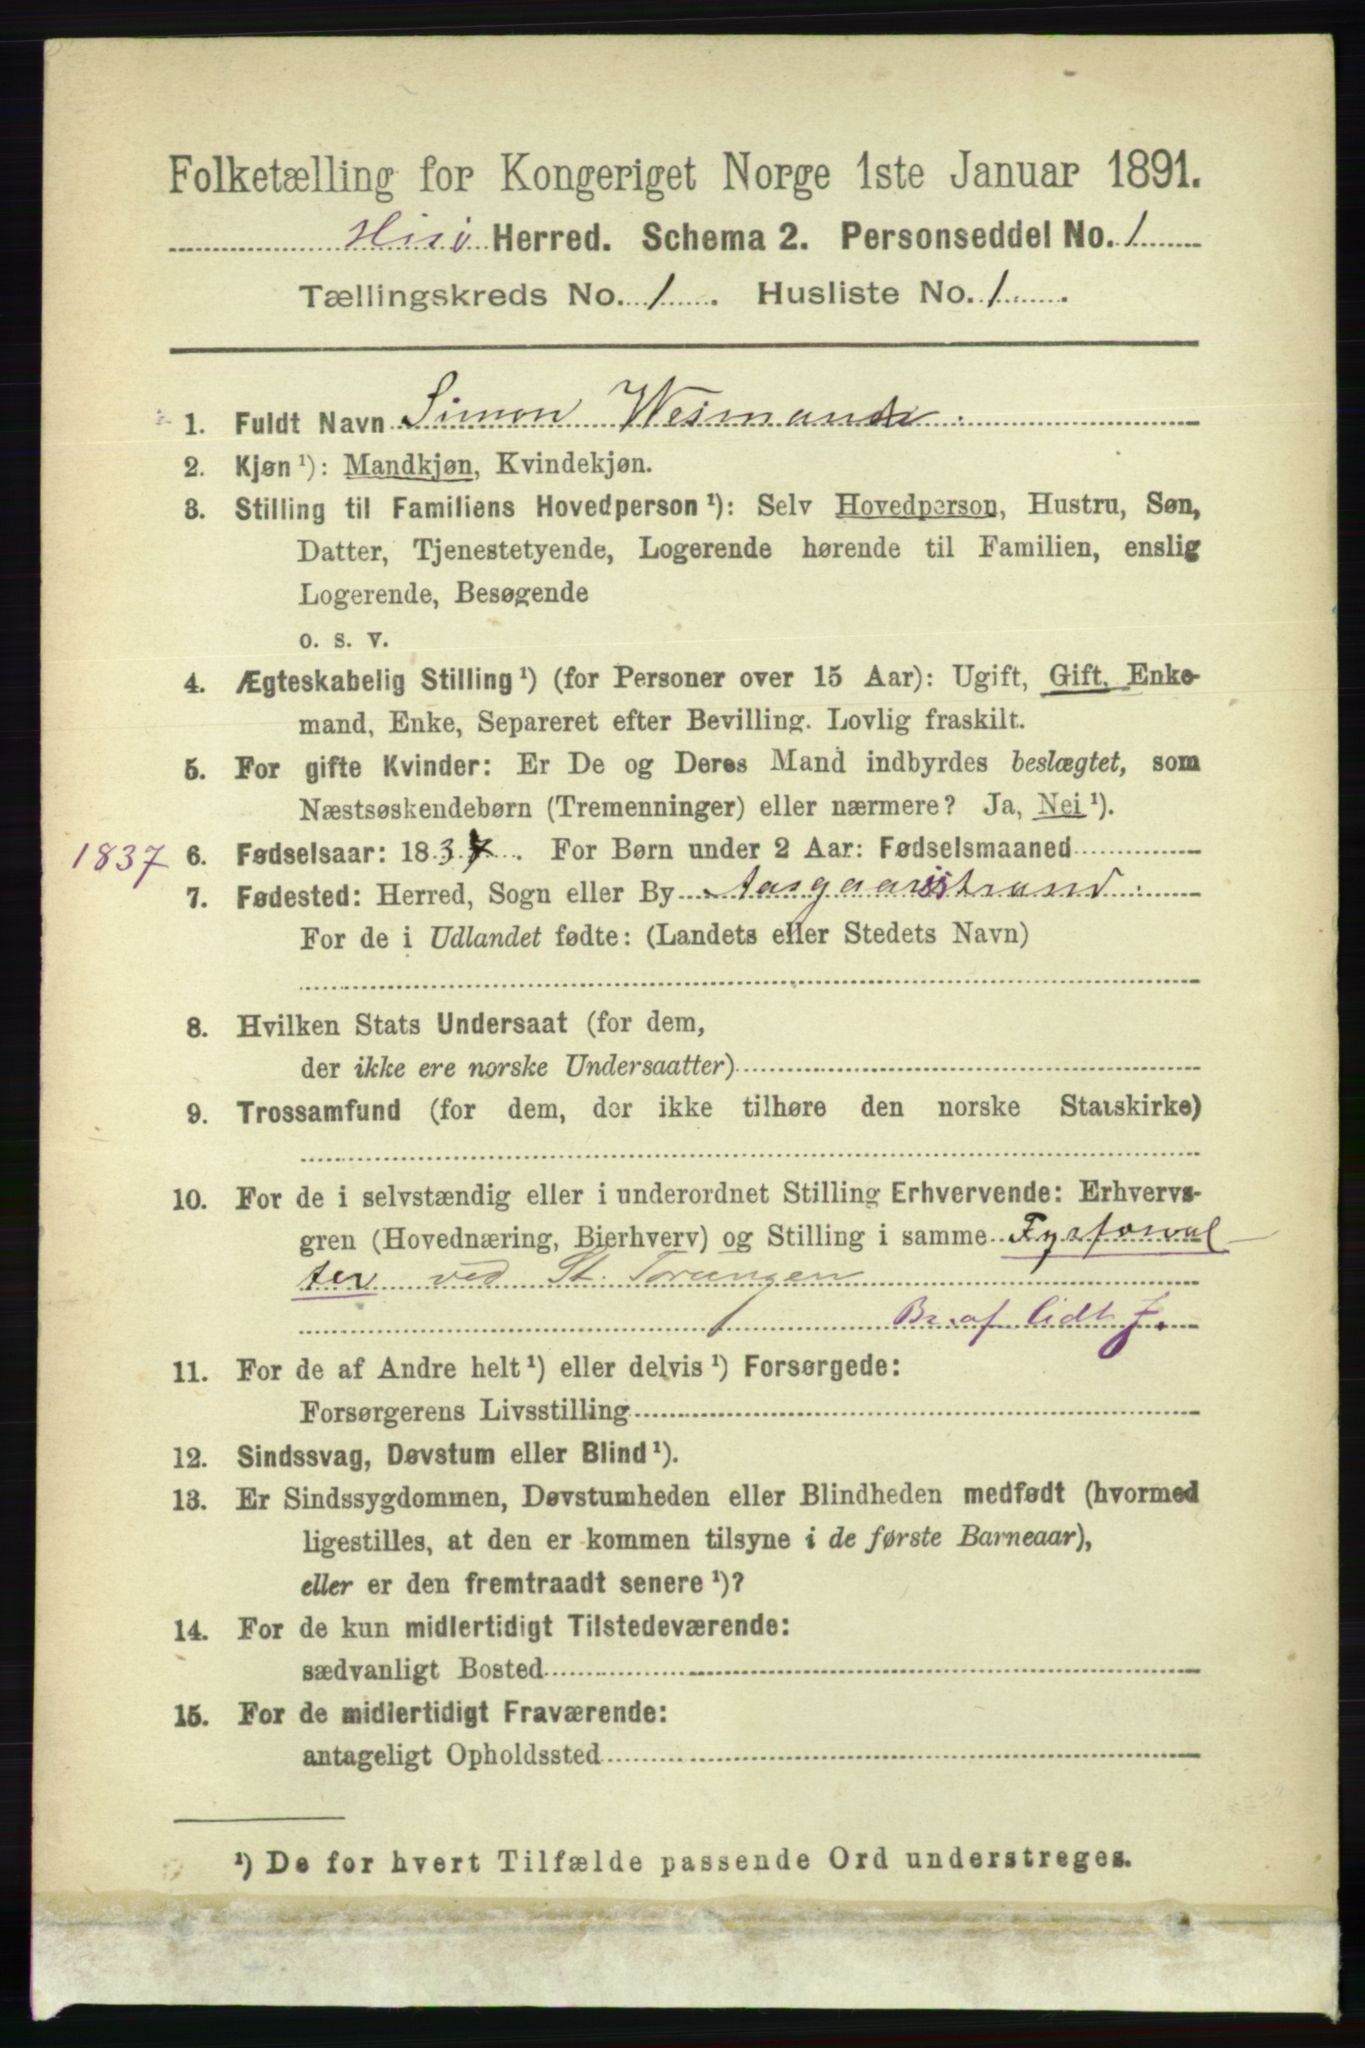 Folketælling for Kongeriget Norge 1ste Januar 1891.
Hisø Herred. Schema 2. Personseddel No. 1
Tællingskreds No. 1. Husliste No. 1.
1. Fuldt Navn Simon
2. Kjøn ¹): Mandkjøn, Kvindekjøn.
3. Stilling til Familiens Hovedperson ¹): Selv Hovedperson, Hustru, Søn,
Datter, Tjenestetyende, Logerende hørende til Familien, enslig
Logerende, Besøgende
o. s. v.
4. Ægteskabelig Stilling ¹) (for Personer over 15 Aar): Ugift, Gift, Enke-
mand, Enke, Separeret efter Bevilling. Lovlig fraskilt.
5. For gifte Kvinder: Er De og Deres Mand indbyrdes beslægtet, som
Næstsøskendebørn (Tremenninger) eller nærmere? Ja, Nei ¹).
1837 6. Fødselsaar: 1837. For Børn under 2 Aar: Fødselsmaaned
7. Fødested: Herred, Sogn eller By Aasgaardsstrand.
For de i Udlandet fødte: (Landets eller Stedets Navn)
8. Hvilken Stats Undersaat (for dem,
der ikke ere norske Undersaatter)
9. Trossamfund (for dem, der ikke tilhøre den norske Statskirke)
10. For de i selvstændig eller i underordnet Stilling Erhvervende: Erhvervs-
gren (Hovednæring, Bierhverv) og Stilling i samme Fyrforval
ter ved St. Torungen
Br. af lidt J.
11. For de af Andre helt ¹) eller delvis ¹) Forsørgede:
Forsørgerens Livsstilling
12. Sindssvag, Døvstum eller Blind ¹).
13. Er Sindssygdommen, Døvstumheden eller Blindheden medfødt (hvormed
ligestilles, at den er kommen tilsyne i de første Barneaar),
eller er den fremtraadt senere ¹)?
14. For de kun midlertidigt Tilstedeværende:
sædvanligt Bosted
15. For de midlertidigt Fraværende:
antageligt Opholdssted
¹) De for hvert Tilfælde passende Ord understreges.